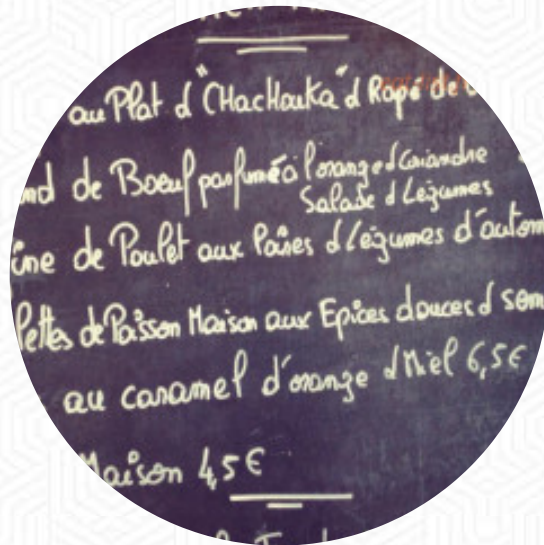 au Plat d "CHacHouka" d Rapé de
de Boeuf parfumé à l'orange d Coriandre
Salade d Légumes
de Poulet aux Poires d Légumes d'autom
lettes de Poisson Maison aux Epices douces d sem
au caramel d'orange d Miel 6,5€
Maison 4,5€